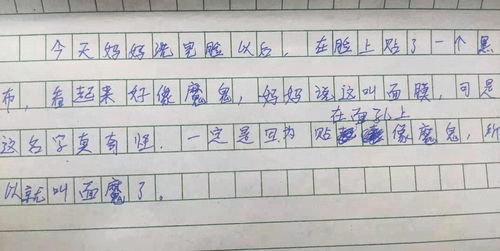 今天妈妈洗完脸以后,在脸上贴了一个黑
布,看起来好像魔鬼,妈妈说这叫面膜,可是
这名字真有怪.一定是因为贴在面孔上像魔鬼,所
以就叫面魔了。